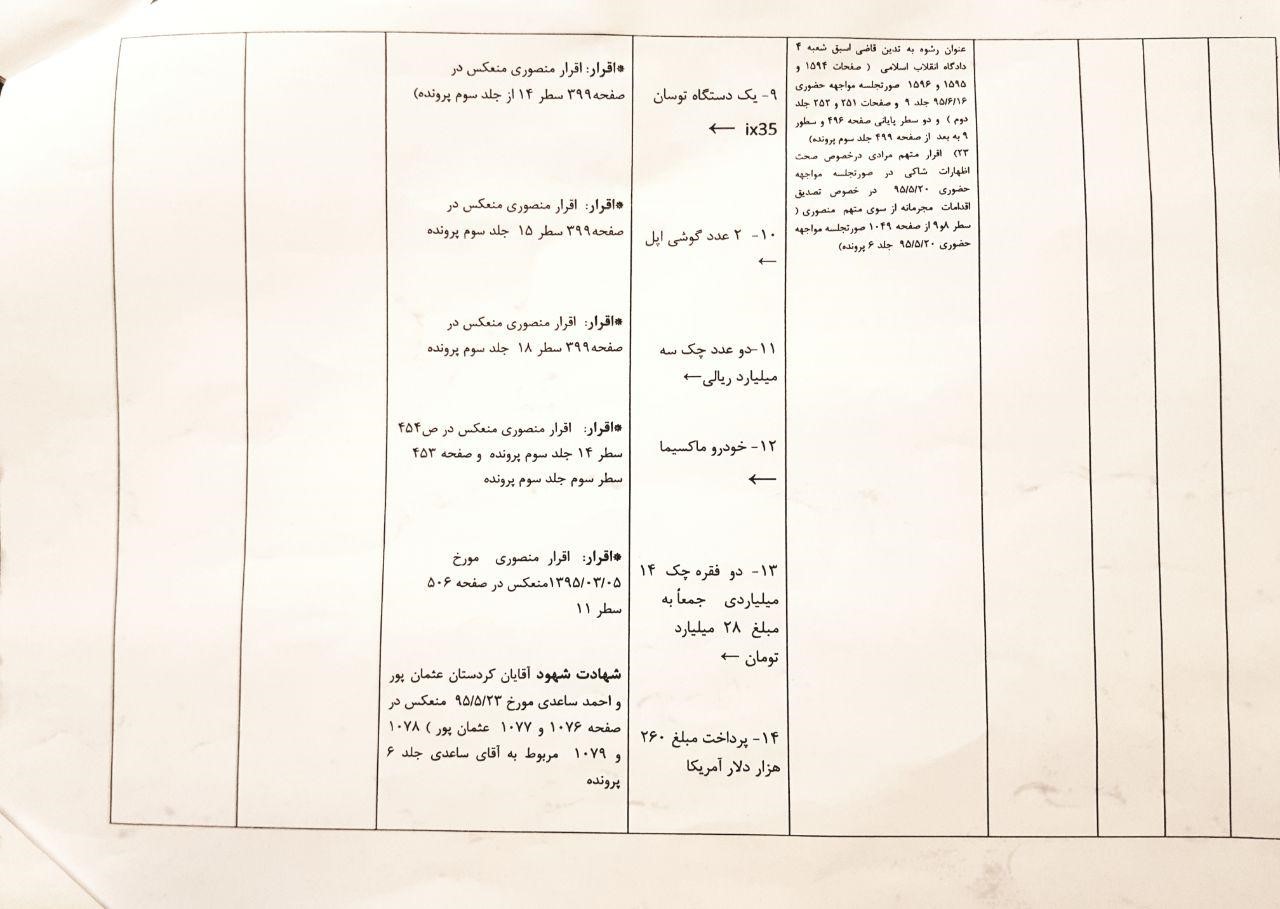 عنوان رشوه به تدین قاضی اسبق شعبه ۴
دادگاه انقلاب اسلامی ( صفحات ۱۵۹۴ و
۱۵۹۵ و ۱۵۹۶ صورتجلسه مواجهه حضوری
۹۵/۶/۱۶ جلد ۹ و صفحات ۲۵۱ و ۲۵۲ جلد
دوم ) و دو سطر پایانی صفحه ۴۹۶ و سطور
۹ به بعد از صفحه ۴۹۹ جلد سوم پرونده)
۲۳) اقرار متهم مرادی درخصوص صحت
اظهارات شاکی در صورتجلسه مواجهه
حضوری ۹۵/۵/۲۰ در خصوص تصدیق
اقدامات مجرمانه از سوی متهم منصوری (
سطر ۸و۹ از صفحه ۱۰۴۹ صورتجلسه مواجهه
حضوری ۹۵/۵/۲۰ جلد ۶ پرونده)
۹- یک دستگاه توسان
ix35 ←
۱۰- ۲ عدد گوشی اپل
←
۱۱-دو عدد چک سه
میلیارد ریالی←
۱۲- خودرو ماکسیما
←
۱۳- دو فقره چک ۱۴
میلیاردی جمعاً به
مبلغ ۲۸ میلیارد
تومان ←
۱۴- پرداخت مبلغ ۲۶۰
هزار دلار آمریکا
*اقرار: اقرار منصوری منعکس در
صفحه۳۹۹ سطر ۱۴ از جلد سوم پرونده)
*اقرار: اقرار منصوری منعکس در
صفحه۳۹۹ سطر ۱۵ جلد سوم پرونده
*اقرار: اقرار منصوری منعکس در
صفحه۳۹۹ سطر ۱۸ جلد سوم پرونده
*اقرار: اقرار منصوری منعکس در ص۴۵۴
سطر ۱۴ جلد سوم پرونده و صفحه ۴۵۳
سطر سوم جلد سوم پرونده
*اقرار: اقرار منصوری مورخ
۱۳۹۵/۰۳/۰۵منعکس در صفحه ۵۰۶
سطر ۱۱
شهادت شهود آقایان کردستان عثمان پور
و احمد ساعدی مورخ ۹۵/۵/۲۳ منعکس در
صفحه ۱۰۷۶ و ۱۰۷۷ عثمان پور ) ۱۰۷۸
و ۱۰۷۹ مربوط به آقای ساعدی جلد ۶
پرونده